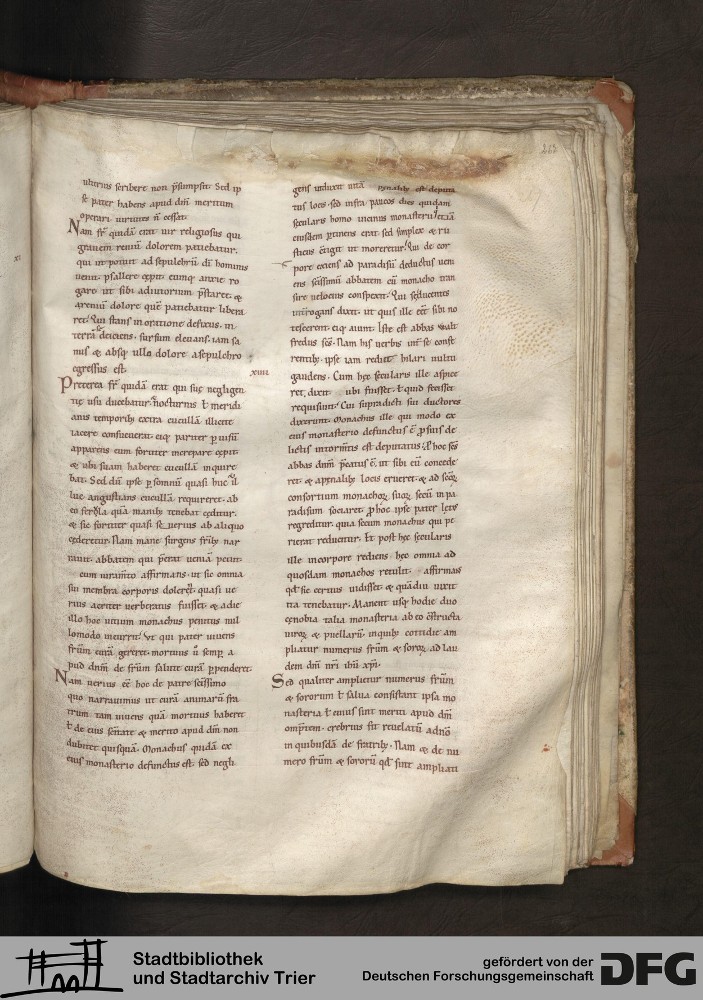 ulterius scribere non p̄sumpsit. Sed ip
se pater habens apud dm̄ meritum
operari uirtutes n̄ cessat.
Nam fr̄ quidā erat uir religiosus qui
grauem renū dolorem patiebatur.
qui ut potuit ad sepulchrū dī hominis
uenit. psallere cępit. eumq; anxie ro
gare ut sibi adiutorium p̄staret. &
a renū dolore quē patiebatur libera
ret. Qui stans in oratione defixus. in
terrā se deiciens. sursum eleuans. iam sa
nus & absq; ullo dolore a sepulchro
egressus est.
Preterea fr̄ quidā erat qui suę negligen
tię usu ducebatur. nocturnis ł meridi
anis temporib; extra cucullā illicite
iacere consueuerat. eiq; pariter p uisū
apparens eum fortiter increpare cępit.
& ubi suam haberet cucullā inquire
bat. Sed dū ipse p somnū quasi huc ił
luc angustians cucullā requireret. ab
eo ferula quā manib; tenebat cęditur.
& sic fortiter quasi se uerius ab aliquo
cederetur. Nam mane surgens frib; nar
rauit. abbatem qui p̄erat ueniā petiit.
cum iuramto affirmans. ut sic omnia
sui membra corporis doleret. quasi ue
rius acriter uerberatus fuisset. & a die
illo hoc uitium monachus penitus nul
lomodo incurrit. Ut qui pater uiuens
frūm curā gereret. mortuus ū semp a
pud dnm̄ de frūm salute curā ppenderet.
Nam uerius eē hoc de patre scīssimo
quo narrauimus ut curā animarū fra
trum tam uiuens quā mortuus haberet
ł de eius scītate & merito apud dm̄ non
dubitet quisquā. Monachus quidā ex
eius monasterio defunctus est. sed negli
gens uidixit uitā. pęnalib; est deputa
tus locis. sed infra paucos dies quidam
secularis homo uicinus monasterii etiā
eiusdem ptinens erat sed simplex & ru
sticus. cōtigit ut moreretur. Qui de cor
pore exiens ad paradisū deductus. ueni
ens scīssimū abbatem cū monacho tran
sire uelocius conspexit. Qui sęducentes
interrogans dixit. ut quis ille eēt sibi no
tescerent. eiq; aiunt. Iste est abbas walt
fredus scs̄. Nam his uerbis int̄ se confe
rentib; ipse iam rediit hilari uultu
gaudens. Cum hęc secularis ille aspice
ret. dixit ubi fuisset. ł quid fecisset
requisiuit. Cui supradicti sui ductores
dixerunt. Monachus ille qui modo ex
eius monasterio defunctus ē. p suis de
lictis in tormītis est deputatus. & p hoc scs̄
abbas dnm̄ p̄catus ē. ut sibi eū concede
ret. & a pęnalib; locis erueret. & ad scōꝝ
consortium monachoꝝ suoꝝ secū in pa
radisum sociaret. p hoc ipse pater lęte
regreditur. qua secum monachus qui pe
rierat reducitur. Et post hęc secularis
ille in corpore rediens. hęc omnia ad
quosdam monachos retulit. affirmans
qd̄ sic certius uidisset. & quādiu uixit
ita tenebatur. Manent usq; hodie duo
cęnobia. talia monasteria ab eo cōstructa
uiroꝝ & puellarū. in quib; cottidie am
pliatur numerus frūm & soroꝝ. ad lau
dem dn̄i nr̄i ihū xp̄i.
Sed qualiter amplietur numerus frūm
& sororum. ł salua consistant ipsa mo
nasteria. ł cuius sint meriti apud dm̄
omp̄tem. crebrius fit reuelatū a dn̄o
in quibusdā de fratrib;. Nam & de nu
mero frūm & sororū qd̄ sint ampliati
xviii.
xi
Stadtbibliothek
und Stadtarchiv Trier
gefördert von der
Deutschen Forschungsgemeinschaft
DFG